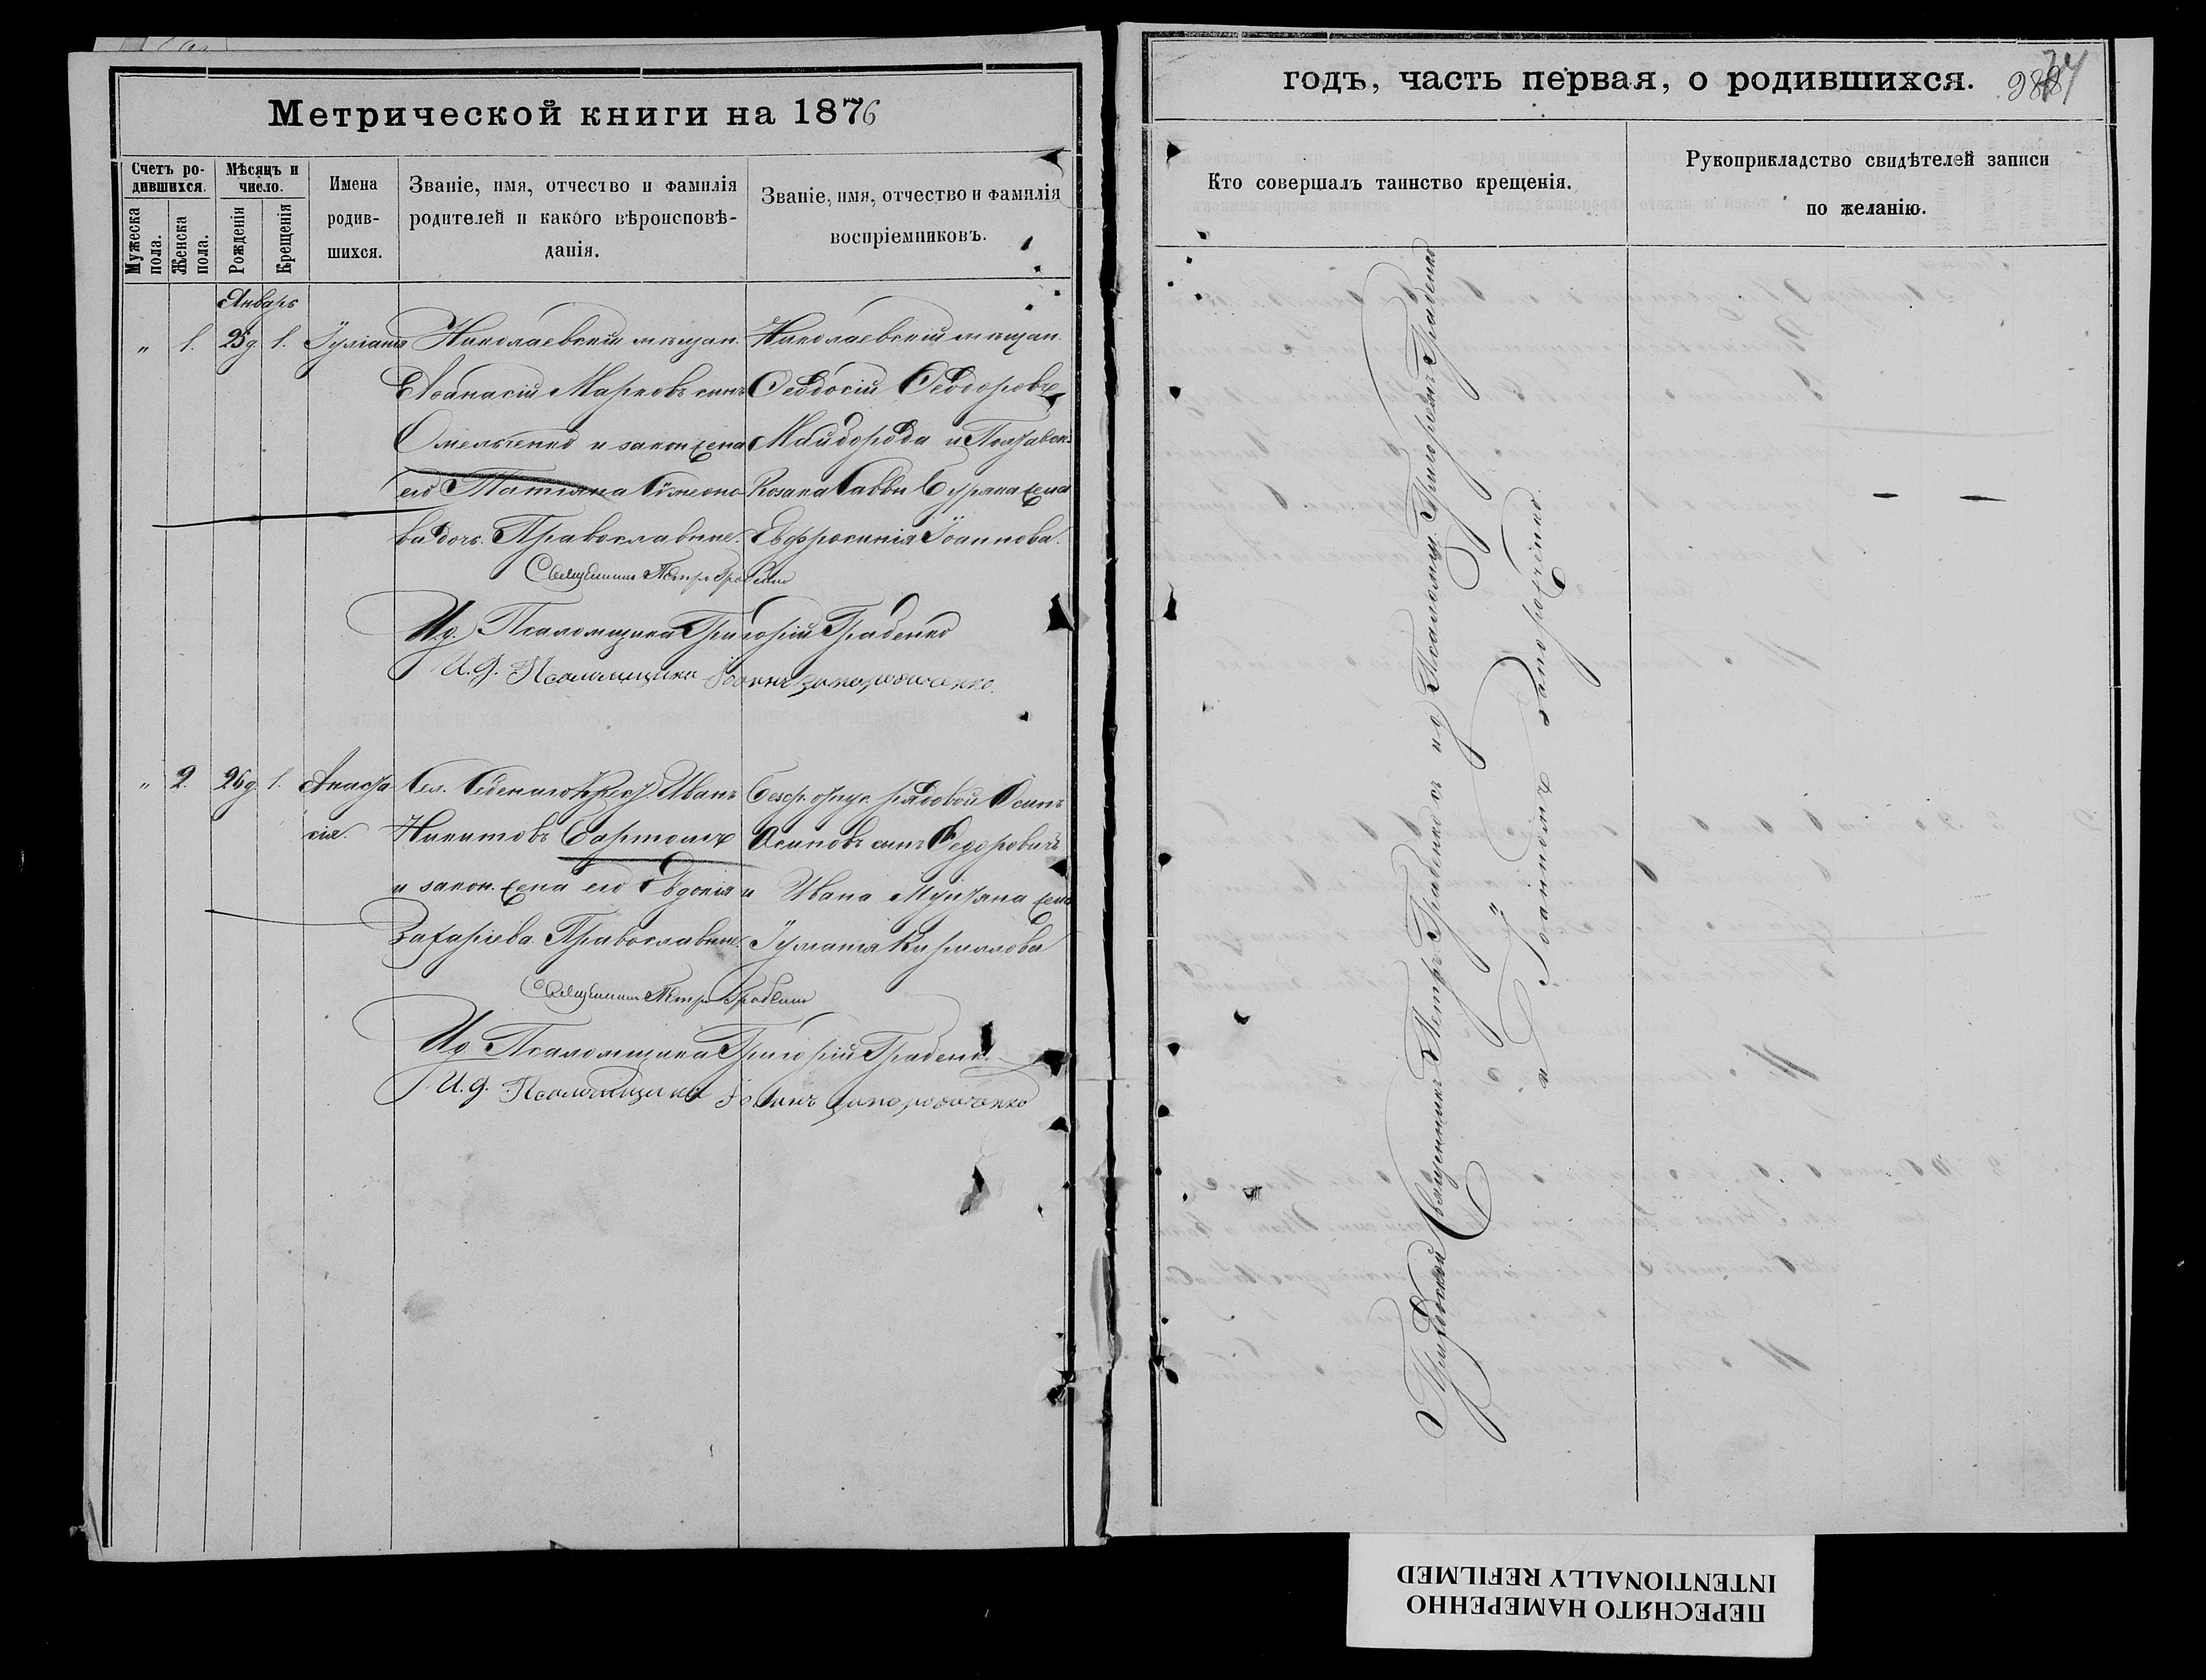 Метрической книги на 1876
Счетъ родившихся.
Мужеска пола.
Женска пола.
Мѣсяцъ и число.
Рожденія
Крещенія
Имена родившихся.
Званіе, имя, отчество и фамилія
родителей и какого вѣроисповѣ-
данія.
Званіе, имя, отчество и фамилія
воспріемниковъ.
Январь
" 1. 25д 1. Іуліанія
Николаевскій мѣщан.
Афанасій Марковъ сынъ
Омельченко и закон жена
его Татіана Симеоно
ва дочь. Православные.
Николаевскій мѣщан.
Феодосій Феодоровъ
Майборода и
козака Саввы жена
Евфросинія Іоаннова.
Священникъ Петръ Грабенко
И.д. Псаломщика Григорій Грабенко
И.д. Псаломщика Іоаннъ Запорожченко.
" 2. 26д. 1. Анаста
сія.
Сел. Иванъ
Никитовъ
и закон. жена его Евдокія
Захаріева. Православные.
рядовой Осипъ
Осиповъ сынъ Федоровичъ
и Ивана жена
Іуліанія Кириллова
Священникъ Петръ Грабенко
И.д. Псаломщика Григорій Грабенко.
И.д. Псаломщика Іоаннъ Запорожченко
годъ, часть первая, о родившихся.
Кто совершалъ таинство крещенія.
Рукоприкладство свидѣтелей записи
по желанію.
Приходской Священникъ Петръ Грабенко съ и.д. Псаломщ. Григоріемъ Грабенко
и Іоанномъ Запорожченко.
ПЕРЕСНЯТО НАМЕРЕННО
INTENTIONALLY REFILMED